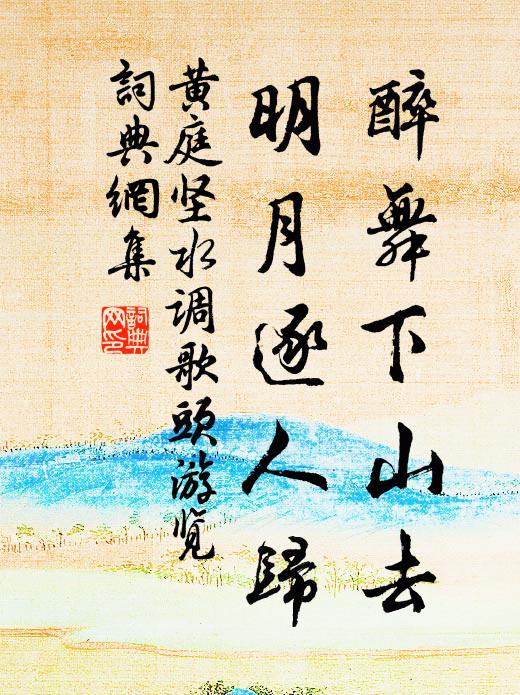 醉舞下山去
明月逐人歸
黄庭坚水调歌頭游览
詞典網集
詞典
网印